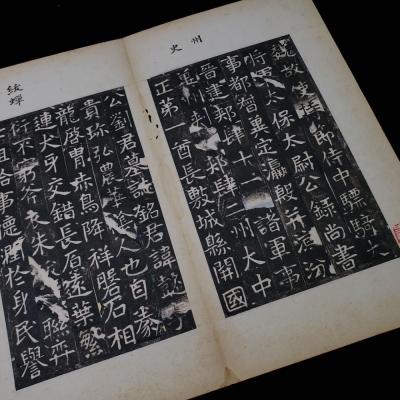 州
史
魏故使節侍中驃騎大
將軍太保太尉公錄尚書
事都督冀定瀛殷并涼汾
晉建郟肆十諸軍事
州刺郟肆二州大中
正第一酋長敷城縣開國
紱蟬
公劉君墓誌銘君諱懿字
貴珍弘農華陰人也自豢
龍啓胄赤烏降祥磐石相
連犬牙交錯長原遠葉繁
衍不窮斧衣朱聯弈
祖給事德潤於身民譽